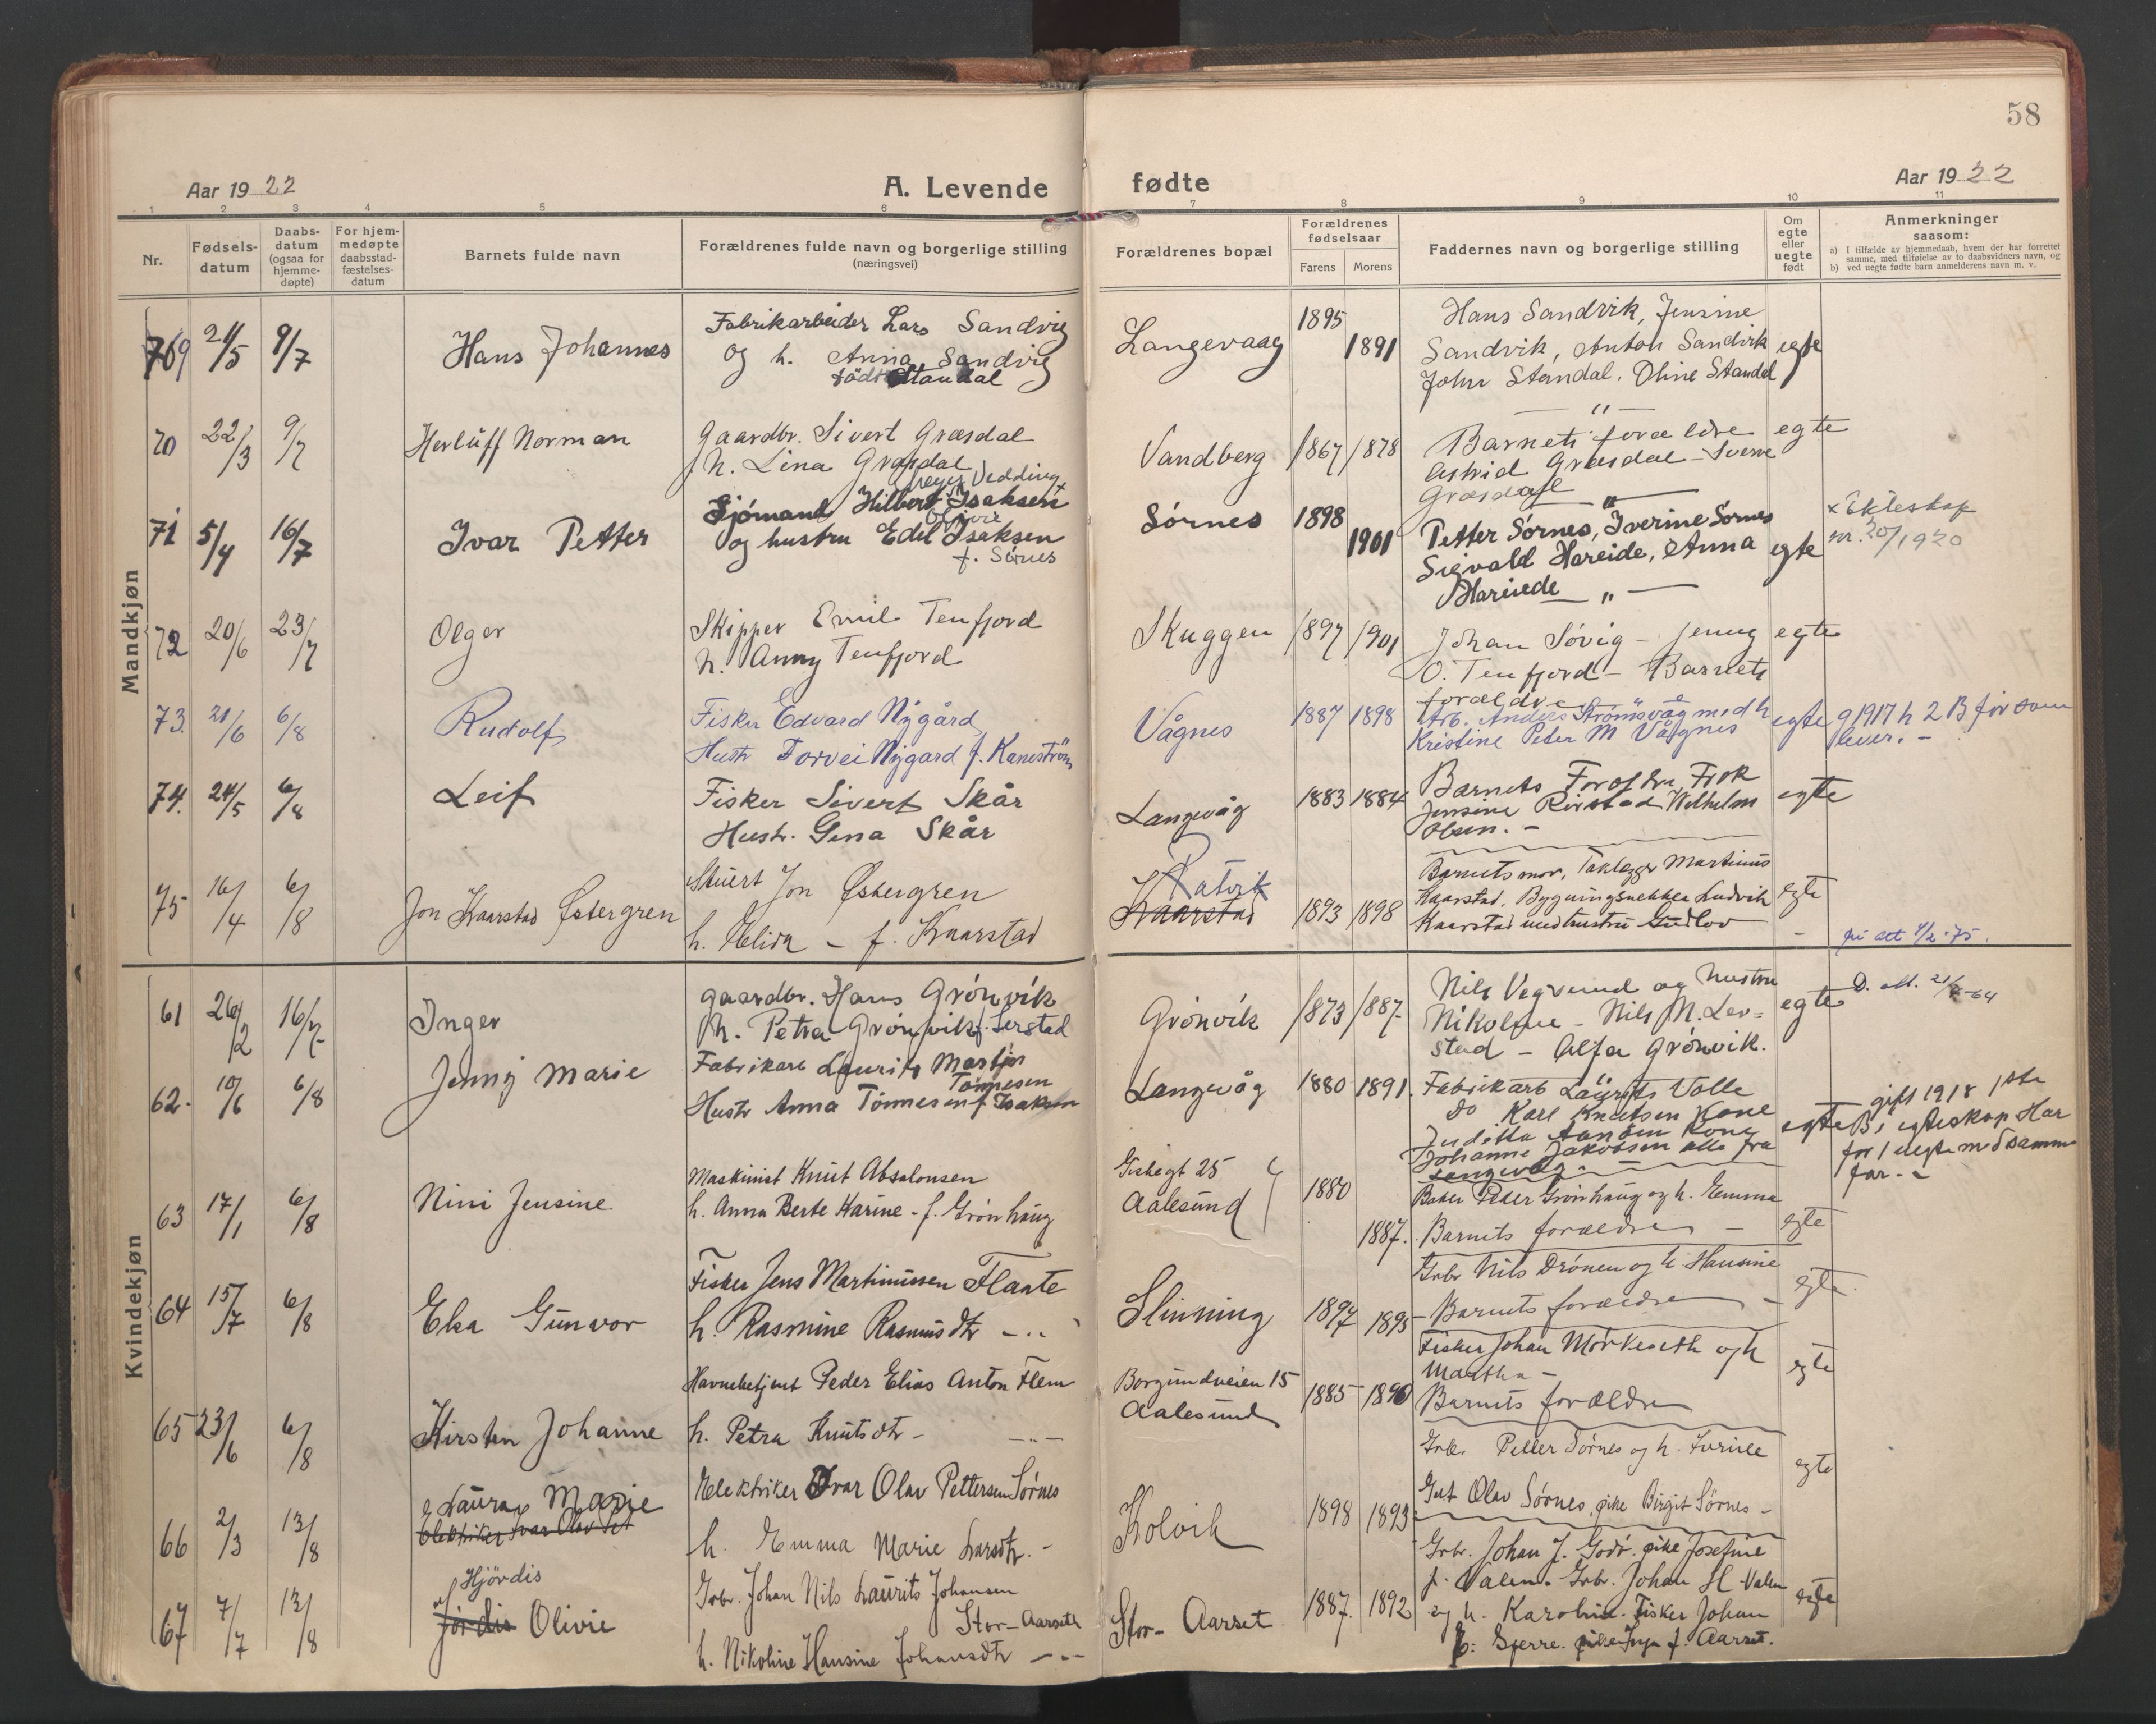 58
Aar 1922
A. Levende
fødte
Aar 1922
1 2 3 4 5 6 7 8 9 10 11
Nr.
Fødsels-
datum
Daabs-
datum
(ogsaa for
hjemme-
døpte)
For hjem-
medøpte
daabsstad-
fæstelses-
datum
Barnets fulde navn
Forældrenes fulde navn og borgerlige stilling
(næringsvei)
Forældrenes bopæl
Forældrenes
fødselsaar
Farens Morens
Faddernes navn og borgerlige stilling
Om
egte
eller
uegte
født
Anmerkninger
saasom:
a) I tilfælde av hjemmedaab, hvem der har forrettet
samme, med tilføielse av to daabsvidners navn, og
b) ved uegte fødte barn anmelderens navn m. v.
Mandkjøn
69 21/5 9/7 Hans Johannes
Fabrikarbeider Lars Sandvig
og h. Anna Sandvig
født Standal
Langevaag 1895 1891
Hans Sandvik, Jensine
Sandvik, Anton Sandvik
John Standal, Oline Standal
egte
70 22/3 9/7 Herluff Norman
Gaardbr. Sivert Græsdal
h. Lina Græsdal
Vandberg 1867 1878
Barnets forældre
Astrid Græsdal - Sverre
Græsdal
egte
71 5/4 16/7 Ivar Petter
Vedding x
Sjømand Hilbert Isaksen
og hustru Edel Isaksen
f. Sørnes
Sørnes 1898 1901
Petter Sørnes, Iverine Sørnes
Sigvald Hareide, Anna
Hareide
egte
x Ekteskap
nr. 20/1920
72 20/6 23/7 Olger
Skipper Emil Tenfjord
h. Anny Tenfjord
Skuggen 1897 1901
Johan Søvig - Jenny
O. Tenfjord - Barnets
forældre
egte
73. 21/6 6/8 Rudolf
Fisker Edvard Nygård
Hustr Torvei Nygard f. Kaneström
Vågnes 1887 1898
Arb. Andreas Strømsvåg med h
Kristine Peder M Vågnes
egte
g 1917 h 2 B før som
lever. -
74. 24/5 6/8 Leif
Fisker Sivert Skår
Hustr. Gina Skår
Langevåg 1883 1884
Barnets Foreldre, Frøk
Jensine Rørstad Wilhelm
Olsen. -
egte
75 16/4 6/8 Jon Kaarstad Østergren
Stuert Jon Østergren
h. Elida - f. Kaarstad
Ratvik
Kaarstad 1893 1898
Barnets mor, Taklegger Martinus
Kaarstad, Bygningsnekker Ludvik
Kaarstad med hustru Gudlov
egte
Kvindekjøn
61 26/2 16/7 Inger
Gaardbr. Hans Grönvik
h. Petra Grönvik f. Lerstad
Grönvik 1873 1887
Nils Vegsund og hustru
Nikoline - Nils M. Ler=
stad - Alfa Grönvik.
egte
62. 10/6 6/8 Jenny Marie
Fabrikarb Laurits Martin
Tønnesen
Hustr Anna Tønnesen f Isaksen
Langevåg 1880 1891.
Fabrikarb Laurits Volle
Do Karl Knutsen Kone
Juditta Kone
Johanne Jakobsen alle fra
Langevåg. -
egte
gift 1918 1ste
B i egteskap Har
før 1 uegte med samme
far. -
63 17/1 6/8 Nini Jensine
Maskinist Knut Absalonsen
h. Anna Berte Karine - f. Grönhaug
25
Aalesund 1880 1887.
Baker Peder Grönhaug og h. Emma
Barnets forældre -
egte
64 15/7 6/8 Elsa Gunvor
Fisker Jens Martinussen Flaate
h. Rasmine Rasmusdtr - " -
Slinning 1897 1895
Grbr Nils Drönen og h Hansine
- Barnets forældre -
egte
65 23/6 6/8 Kirsten Johanne
Havnebetjent Peder Elias Anton Flem
h. Petra Knutsdtr - - " -
Borgundveien 15
Aalesund 1885 1890
Fisker Johan Mørkeseth og h
Martha -
Barnets forældre
egte
66 2/3 13/8 Laura Marie
Elektriker Ivar Olav Pet
Elektriker Ivar Olav Pettersen Sørnes
h. Emma Marie Larsdtr. -
Kolvik 1898 1893
Grbr. Petter Sørnes og h. Iverine
Gut Olav Sørnes, pike Birgit Sørnes -
egte
67 7/7 13/8 Hjördis
Jördis Olivie
Grbr. Johan Nils Laurits Johansen
Stor-Aarseth
h. Nikoline Hansine Johansdtr - " -
Stor-Aarset 1887. 1892
Grbr. Johan J. Godø. pike Josefine
J. Valen. Grbr. Johan H. Valen
og h. Karoline. Fisker Johan
E. Sperre. pike Inga J. Aarset.
egte